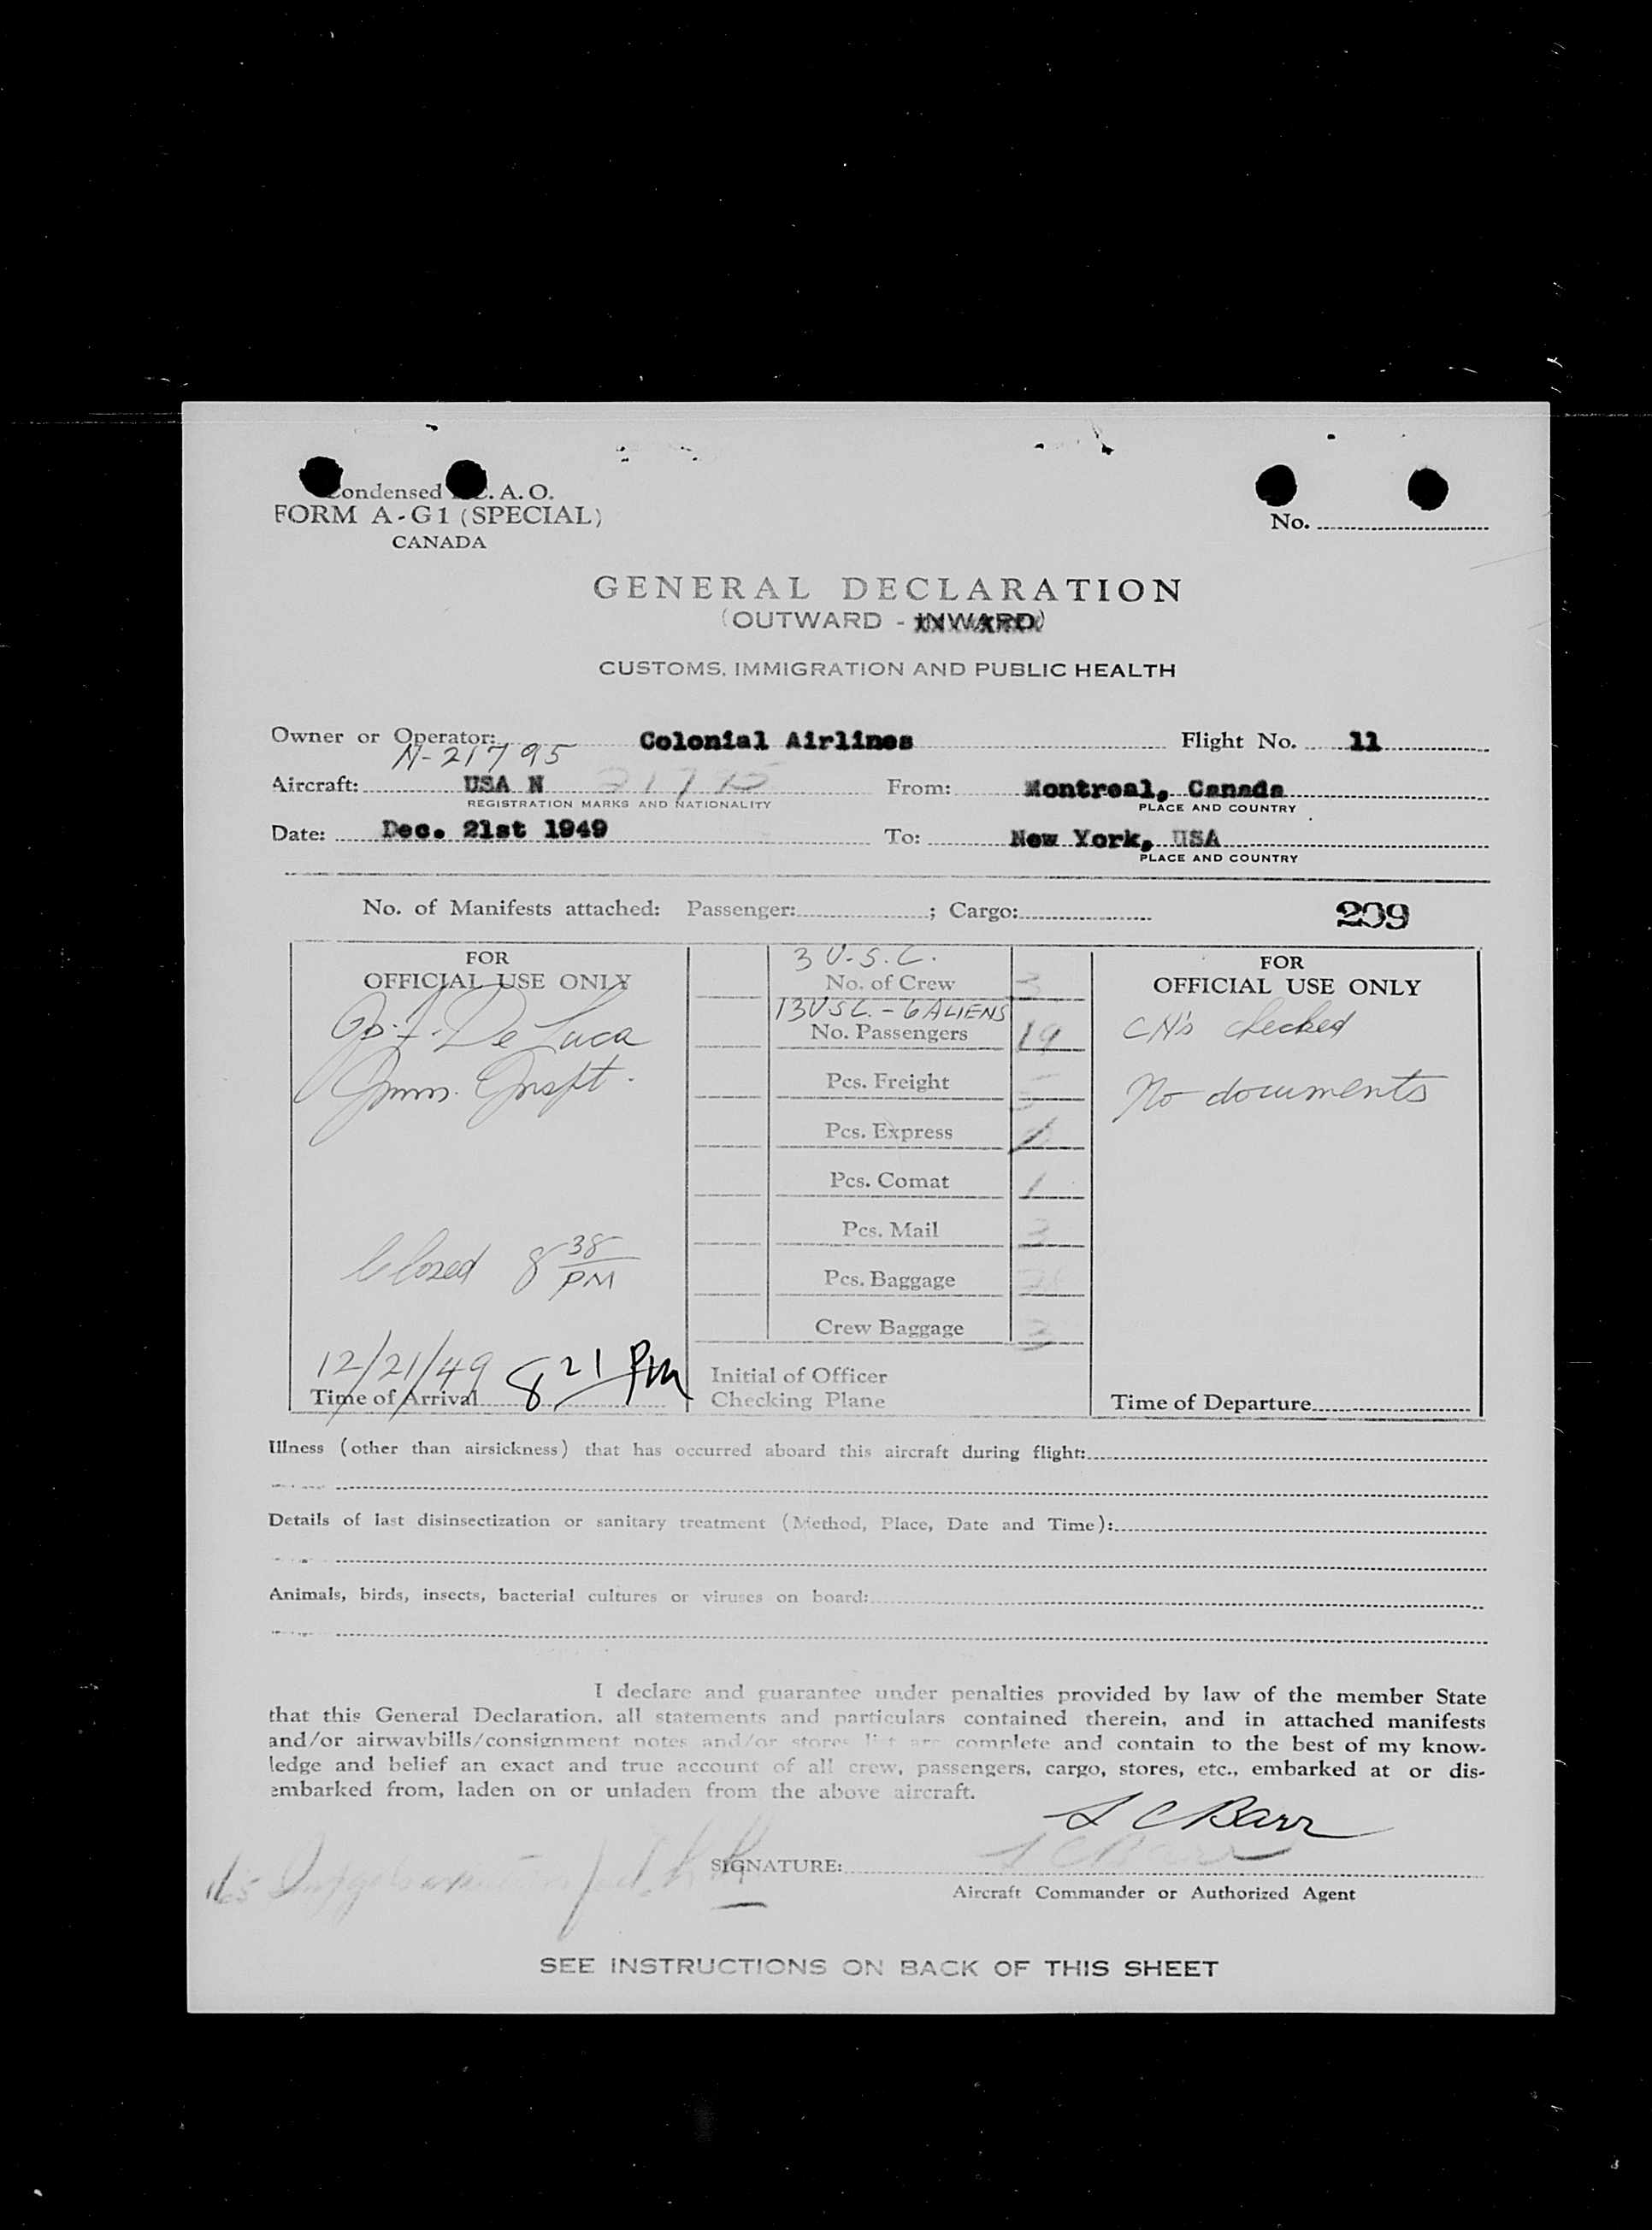 Condensed . A. O.
FORM A-G1 (SPECIAL)
CANADA
No.
GENERAL DECLARATION
(OUTWARD - INWARD)
CUSTOMS, IMMIGRATION AND PUBLIC HEALTH
Owner or Operator: Colonial Airlines Flight No. 11
N-21795
Aircraft: USA N 21795 From: Montreal, Canada
REGISTRATION MARKS AND NATIONALITY PLACE AND COUNTRY
Date: Dec. 21st 1949 To: New York, USA
PLACE AND COUNTRY
No. of Manifests attached: Passenger: ; Cargo:
209
FOR
OFFICIAL USE ONLY
De Luca
Imm. Inspt.
Closed 8 38 PM
12/21/49 8 21 PM
Time of Arrival
3 U.S.C.
No. of Crew 3
13 USC. - 6 ALIENS
No. Passengers 19
Pcs. Freight
Pcs. Express 1
Pcs. Comat 1
Pcs. Mail 3
Pcs. Baggage
Crew Baggage 3
Initial of Officer
Checking Plane
FOR
OFFICIAL USE ONLY
CH's checked
No documents
Time of Departure
Illness (other than airsickness) that has occurred aboard this aircraft during flight:
Details of last disinsectization or sanitary treatment (Method, Place, Date and Time):
Animals, birds, insects, bacterial cultures or viruses on board:
I declare and guarantee under penalties provided by law of the member State
that this General Declaration, all statements and particulars contained therein, and in attached manifests
and/or airwaybills/consignment notes and/or stores list are complete and contain to the best of my know-
ledge and belief an exact and true account of all crew, passengers, cargo, stores, etc., embarked at or dis-
embarked from, laden on or unladen from the above aircraft.
S C Barr
SIGNATURE: S C Barr
Aircraft Commander or Authorized Agent
SEE INSTRUCTIONS ON BACK OF THIS SHEET